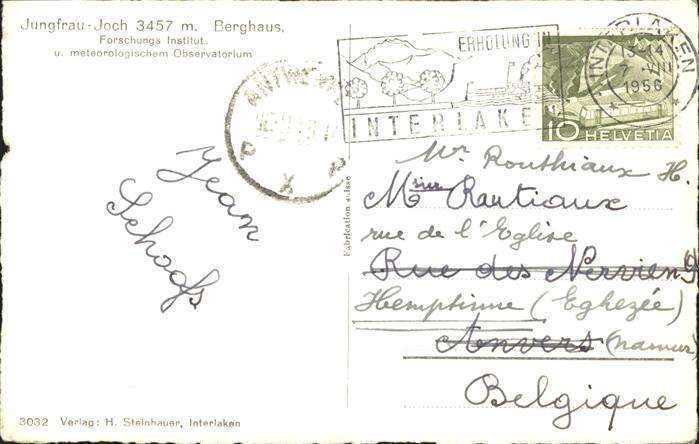 Jungfrau-Joch 3457 m. Berghaus,
Forschungs Institut.
u. meteorologischem Observatorium
ERHOLUNG IN
INTERLAKEN
INTERLAKEN
1956
10 HELVETIA
ANTWERPEN
P X
Jean
Schoofs
Fabrication suisse
Mr Routhiaux H.
Msieur Rautiaux
rue de l'Eglise
Rue des Nerviens 9
Hemptinne (Eghezée)
Anvers (namur)
Belgique
3032 Verlag: H. Steinhauer, Interlaken